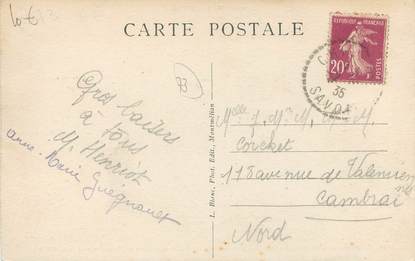 CARTE POSTALE
REPUBLIQUE FRANÇAISE
20c
POSTES
35
SAVOIE
73
Gros baisers
à tous
M. Henriot
Anne-Marie
L. Blanc, Phot. Edit., Montmélian
Melle J, Mr M,
178 avenue de Valenciennes
Cambrai
Nord